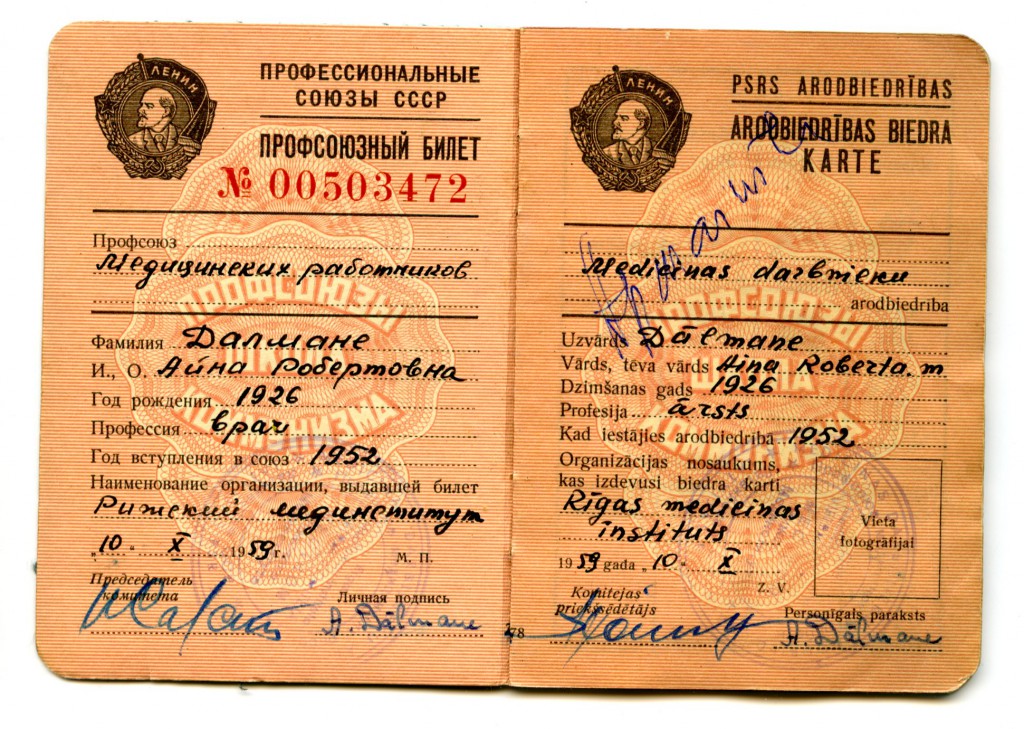 ЛЕНИН
ПРОФЕССИОНАЛЬНЫЕ
СОЮЗЫ СССР
ПРОФСОЮЗНЫЙ БИЛЕТ
№ 00503472
Профсоюз
Медицинских работников
Фамилия Далмане
И., О. Айна Робертовна
Год рождения 1926
Профессия врач
Год вступления в союз 1952
Наименование организации, выдавшей билет
Рижский мединститут
„10“ X 1959 г.
М. П.
Председатель
комитета
Личная подпись
A. Dālmane
ЛЕНИН
PSRS ARODBIEDRĪBAS
ARODBIEDRĪBAS BIEDRA
KARTE
Medicīnas darbinieku
arodbiedrība
Uzvārds Dālmane
Vārds, tēva vārds Aina Roberta m.
Dzimšanas gads 1926
Profesija ārsts
Kad iestājies arodbiedrībā 1952
Organizācijas nosaukums,
kas izdevusi biedra karti
Rīgas medicīnas
institūts
Vieta
fotogrāfijai
1959 gada „10“ X
Z. V.
Komitejas
priekšsēdētājs
Personīgais paraksts
A. Dālmane
ПРОФСОЮЗЫ
ШКОЛА
КОММУНИЗМА
ПРОФСОЮЗЫ
ШКОЛА
КОММУНИЗМА